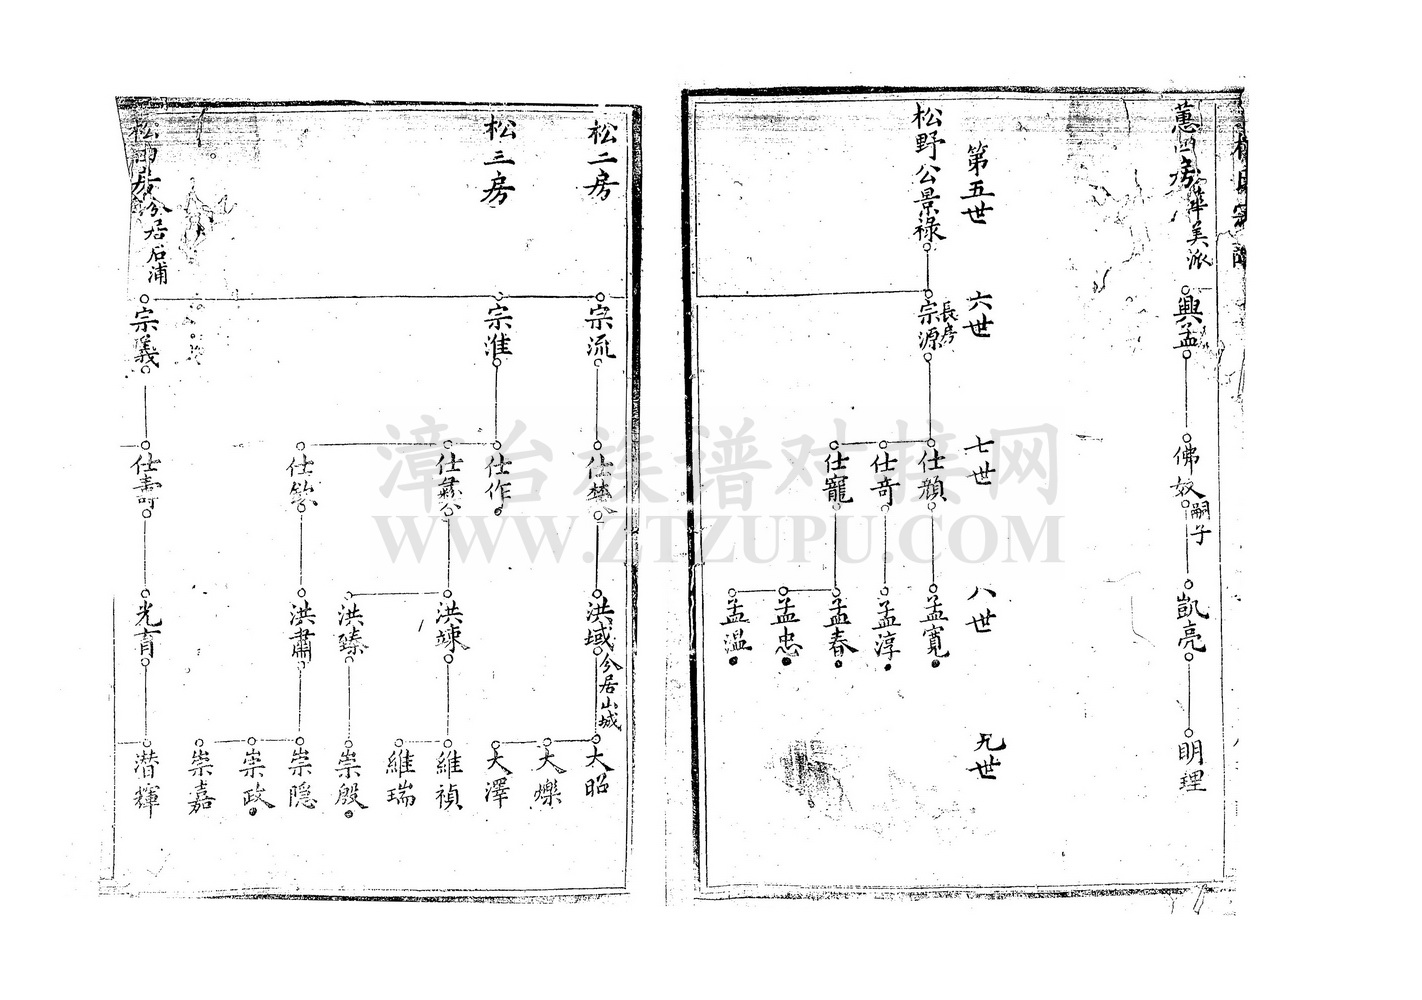 蕙四房
華美派
興孟
佛奴
嗣子
凱亮
明理
第五世
六世
七世
八世
九世
松野公景祿
宗源
長房
仕顏
仕奇
仕寵
孟寬
孟淳
孟春
孟忠
孟溫
松二房
宗流
洪域
今居山城
大昭
大爍
大澤
松三房
宗淮
仕作
仕彝
洪竦
洪臻
洪肅
維禎
維瑞
崇殷
崇隐
崇政
崇嘉
松四房
分居后浦
宗義
仕壽
光育
潜輝
漳台族谱对接网
WWW.ZTZUPU.COM